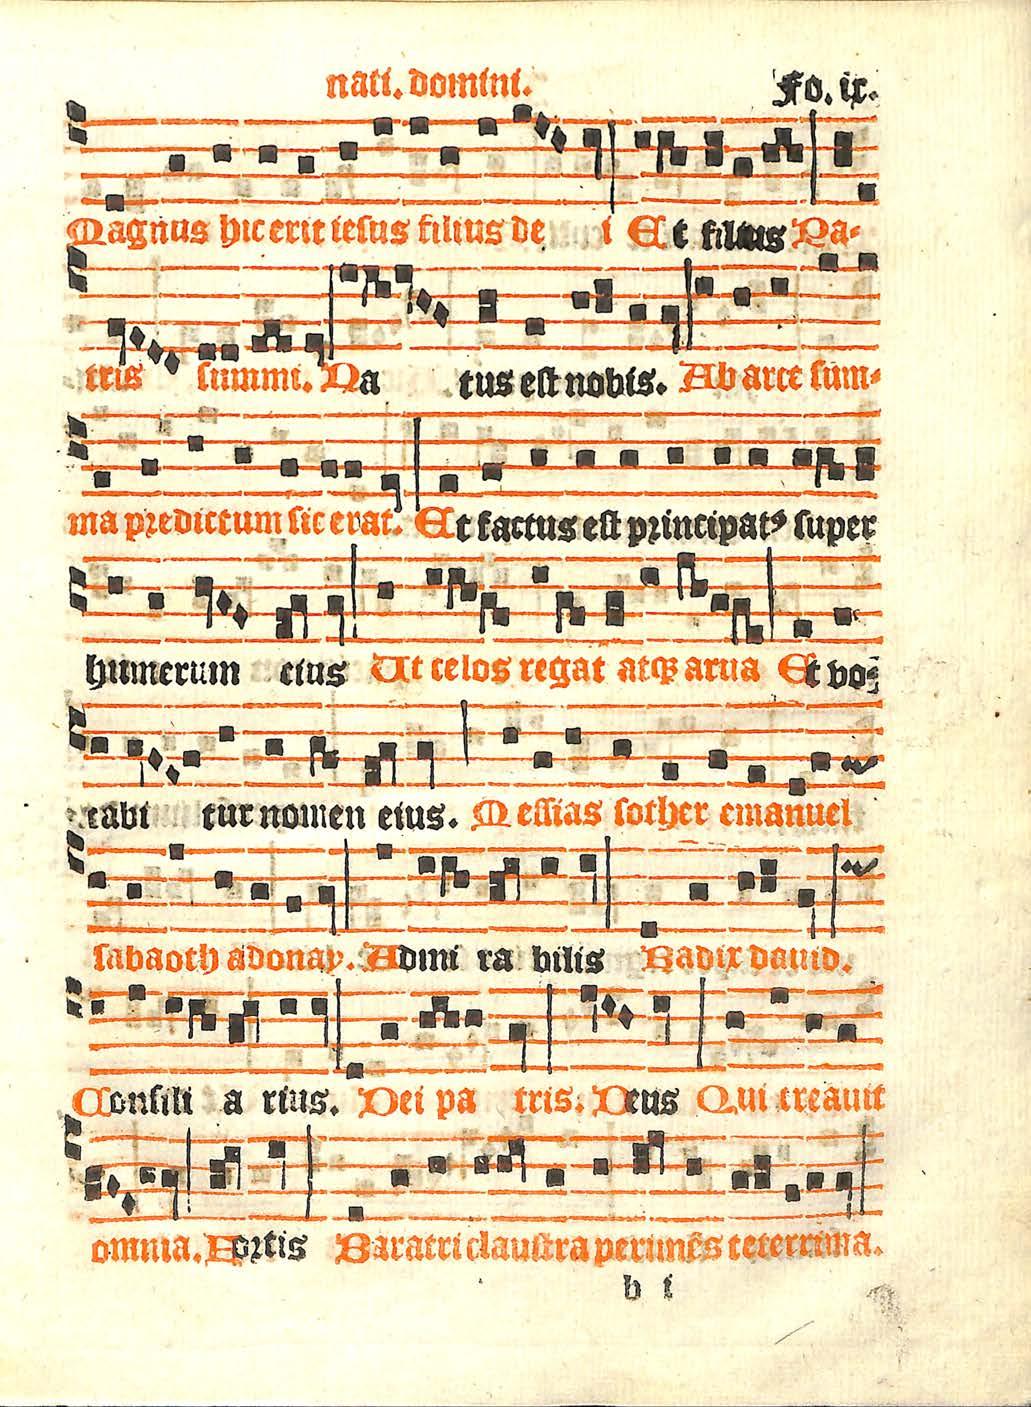 nati. domini. Fo. ix.
Magnus hic erit iesus filius de i Et filius Pa-
tris summi. Na tus est nobis. Ab arce sum-
ma predictum sic erat. Et factus est principatꝰ super
humerum eius Ut celos regat atqꝫ arua Et vo-
cabi tur nomen eius. Messias sother emanuel
sabaoth adonay. Admi ra bilis Radix dauid.
Consili a rius. Dei pa tris. Deus Qui creauit
omnia. Fortis Baratri claustra perimẽs teterrima.
b i